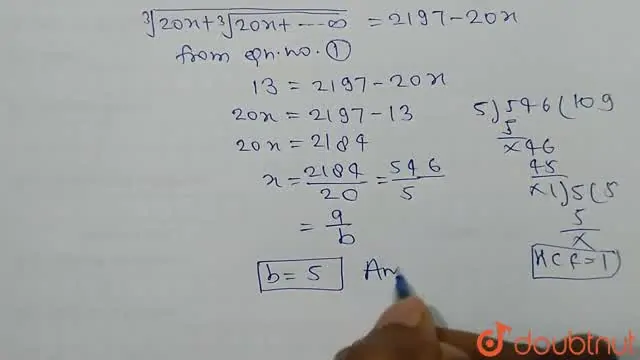 ∛20x+∛20x+---∞ = 2197-20x
from eqn.no. ①
13 = 2197-20x
20x = 2197-13
20x = 2184
x = 2184/20 = 546/5
= a/b
b = 5 An
5)546(109
5
x46
45
x1)5(5
5
x
HCF=1
doubtnut